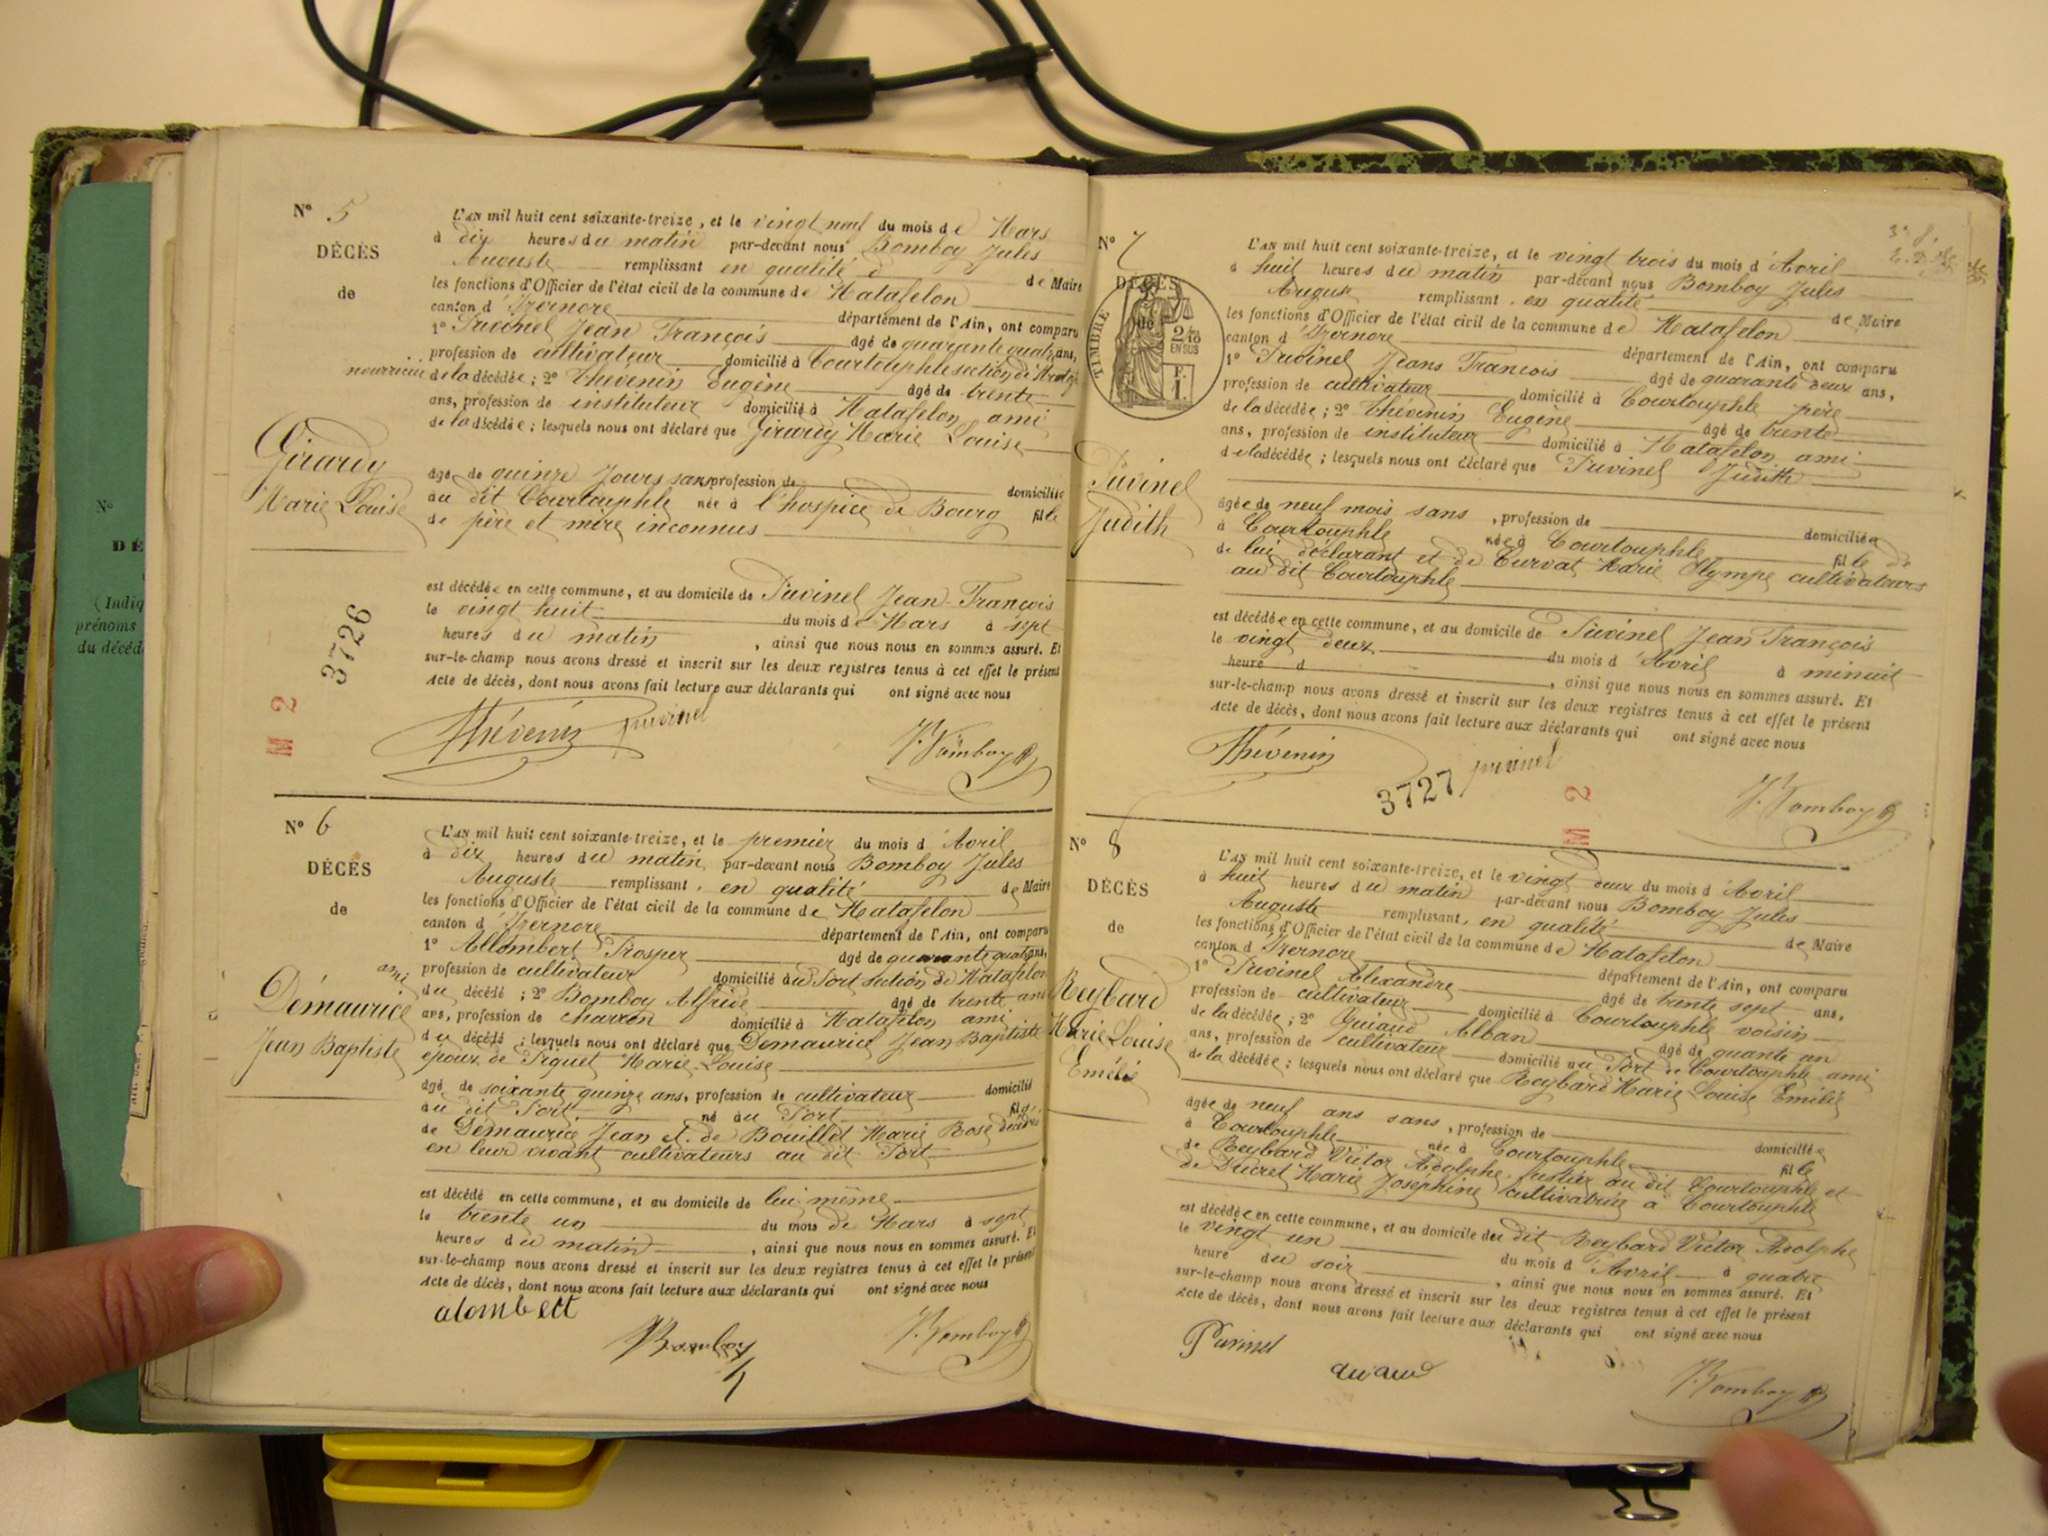 N° 5
DÉCÈS
de
Girardy
Marie Louise
3726
M 2
L'AN mil huit cent soixante-treize, et le vingt neuf du mois de Mars
à dix heures du matin par-devant nous Bomboy Jules
Auguste remplissant en qualité d de Maire
les fonctions d'Officier de l'état civil de la commune de Matafelon
canton d'Izernore département de l'Ain, ont comparu
1° Puvinel Jean François âgé de quarante quatre ans,
profession de cultivateur domicilié à Courtouphle section de
nourricier de la décédée ; 2° Thévenin Eugène âgé de trente
ans, profession de instituteur domicilié à Matafelon ami
de la décédée ; lesquels nous ont déclaré que Girardy Marie Louise
âgé de quinze jours sans profession de domiciliée
au dit Courtouphle née à l'hospice de Bourg fille
de père et mère inconnus
est décédée en cette commune, et au domicile de Puvinel Jean-François
le vingt huit du mois de Mars à sept
heures du matin, ainsi que nous nous en sommes assuré. Et
sur-le-champ nous avons dressé et inscrit sur les deux registres tenus à cet effet le présent
Acte de décès, dont nous avons fait lecture aux déclarants qui ont signé avec nous
Thévenin puvinel
J. Bomboy
N° 6
DÉCÈS
de
Démaurice
Jean Baptiste
L'AN mil huit cent soixante-treize, et le premier du mois d'Avril
à dix heures du matin par-devant nous Bomboy Jules
Auguste remplissant en qualité de Maire
les fonctions d'Officier de l'état civil de la commune de Matafelon
canton d'Izernore département de l'Ain, ont comparu
1° Allombert Prosper âgé de quarante quatre ans,
profession de cultivateur domicilié au Port section de Matafelon
ami du décédé ; 2° Bomboy Alfride âgé de trente
ans, profession de charron domicilié à Matafelon ami
du décédé ; lesquels nous ont déclaré que Démaurice Jean Baptiste
époux de Piquet Marie-Louise
âgé de soixante quinze ans, profession de cultivateur domicilié
au dit Port né au Port fils
de Démaurice Jean et de Bouillet Marie Rose décédés
en leur vivant cultivateurs au dit Port
est décédé en cette commune, et au domicile de lui même
le trente un du mois de Mars à sept
heures du matin, ainsi que nous nous en sommes assuré. Et
sur-le-champ nous avons dressé et inscrit sur les deux registres tenus à cet effet le présent
Acte de décès, dont nous avons fait lecture aux déclarants qui ont signé avec nous
alombett
Bomboy
J. Bomboy
N° 7
DÉCÈS
de
TIMBRE
2/10
EN SUS
F.
1.
Puvinel
Judith
L'AN mil huit cent soixante-treize, et le vingt trois du mois d'Avril
à huit heures du matin par-devant nous Bomboy Jules
Auguste remplissant en qualité de Maire
les fonctions d'Officier de l'état civil de la commune de Matafelon
canton d'Izernore département de l'Ain, ont comparu
1° Puvinel Jean François âgé de quarante deux ans,
profession de cultivateur domicilié à Courtouphle père
de la décédée ; 2° Thévenin Eugène âgé de trente
ans, profession de instituteur domicilié à Matafelon ami
de la décédée ; lesquels nous ont déclaré que Puvinel Judith
âgée de neuf mois sans, profession de domiciliée
à Courtouphle née à Courtouphle fille de
de lui déclarant et de Curvat Marie Olympe cultivateurs
au dit Courtouphle
est décédée en cette commune, et au domicile de Puvinel Jean François
le vingt deux du mois d'Avril à minuit
heure d, ainsi que nous nous en sommes assuré. Et
sur-le-champ nous avons dressé et inscrit sur les deux registres tenus à cet effet le présent
Acte de décès, dont nous avons fait lecture aux déclarants qui ont signé avec nous
Thévenin puvinel
3727
M 2
J. Bomboy
N° 8
DÉCÈS
de
Reybard
Marie Louise
Emélie
L'AN mil huit cent soixante-treize, et le vingt deux du mois d'Avril
à huit heures du matin par-devant nous Bomboy Jules
Auguste remplissant en qualité de Maire
les fonctions d'Officier de l'état civil de la commune de Matafelon
canton d'Izernore département de l'Ain, ont comparu
1° Puvinel Alexandre âgé de trente sept ans,
profession de cultivateur domicilié à Courtouphle voisin
de la décédée ; 2° Guiaud Alban âgé de quante un
ans, profession de cultivateur domicilié au Port de Courtouphle ami
de la décédée ; lesquels nous ont déclaré que Reybard Marie Louise Emélie
âgée de neuf ans sans, profession de domiciliée
à Courtouphle née à Courtouphle fille
de Reybard Victor Adolphe fustier au dit Courtouphle et
de Ducret Marie Joséphine cultivatrice à Courtouphle
est décédée en cette commune, et au domicile du dit Reybard Victor Adolphe
le vingt un du mois d'Avril à quatre
heure du soir, ainsi que nous nous en sommes assuré. Et
sur-le-champ nous avons dressé et inscrit sur les deux registres tenus à cet effet le présent
Acte de décès, dont nous avons fait lecture aux déclarants qui ont signé avec nous
Puvinel
quiaud
J. Bomboy
N°
DÉ
(Indiq
prénoms
du décéd